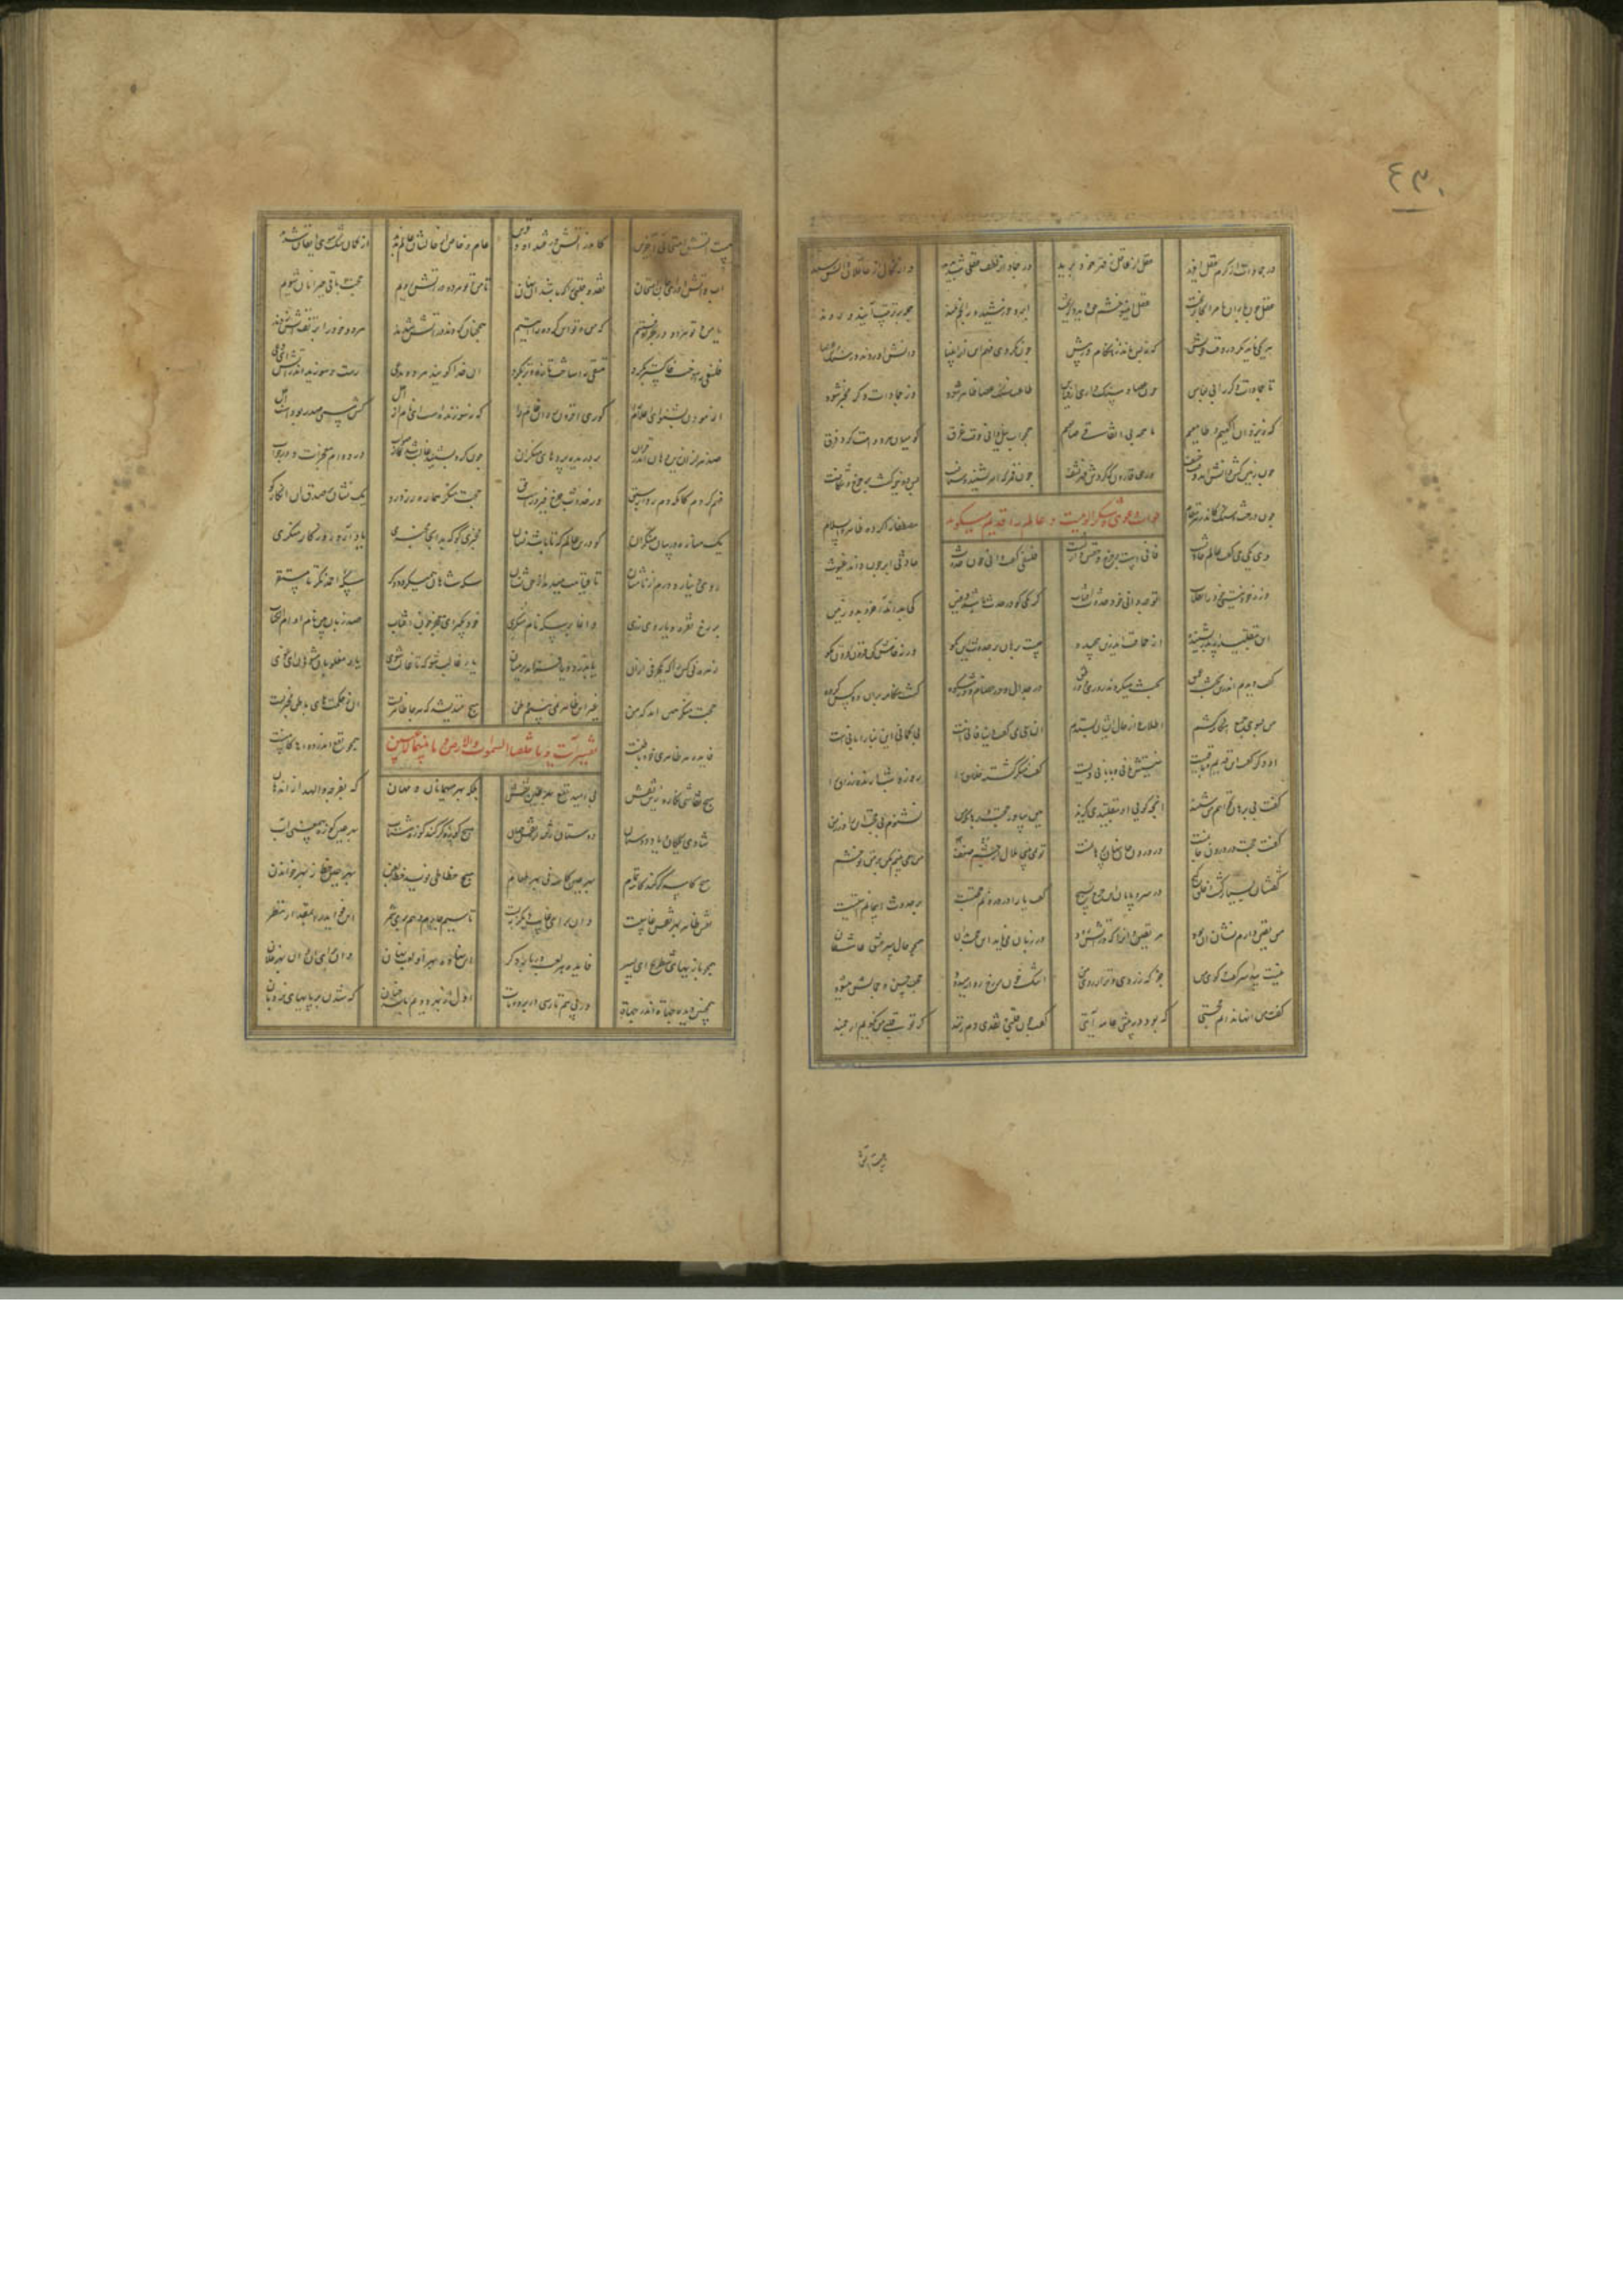 ۴۳۰
در جمادات از کرم عقل آفرید عقل از عاقل بقهر خود برید در جماد از لطف عقلی شد پدید وز نکال از عاقلان دانش رمید
عقل چون باران بامر آنجا بریخت عقل این سو خشم حق دید و گریخت ابر و خورشید و مه و نجم بلند جمله بر ترتیب آیند و روند
هر یکی ناید مگر در وقت خویش که نه پس ماند ز هنگام و نه پیش چون نکردی فهم این را ز انبیا دانش آوردند در سنگ و عصا
تا جمادات دگر را بی لباس چون عصا و سنگ داری از قیاس طاعت سنگ و عصا ظاهر شود وز جمادات دگر مخبر شود
که ز یزدان آگهیم و طایعیم ما همه بی اتفاقی ضایعیم همچو آب نیل دانی وقت غرق کو میان هر دو امت کرد فرق
چون زمین کش دانش آمد وقت خسف در حق قارون که چون قمر که امر بشنید و شتافت پس دو نیمه گشت بر چرخ و شکافت
چون درخت و سنگ کاندر هر مقام مصطفی را کرده ظاهر السلام
جواب دهری و منکر الوهیت و عالم را قدیم میگوید
دی یکی می گفت عالم حادثست فانی است این چرخ و حقش وارثست فلسفی گفت او چون دانی حدوث حادثی ابر چون داند غیوث
ذره خود نیستی از انقلاب تو چه دانی حدوث آفتاب کرمکی کو در حدث باشد دفین کی بداند آخر و بدو زمین
این بتقلید از پدر بشنیده از حماقت اندرین پیچیده چیست برهان بر حدوث این بگو ورنه خامش کن فزون گویی مگو
گفت دیدم اندرین بحث عمیق بحث میکردند روزی دو فریق در جدال و در خصام و در ستوه گشت هنگامه بران دو کس گروه
من بسوی جمع هنگامه شدم اطلاع از حال ایشان بستدم آن یکی می گفت گردون فانیست بی گمانی این بنا را بانیست
وان دگر گفت این قدیم و بی کیست نیستش بانی و یا بانی ویست گفت منکر گشته خلاق را روز و شب آرنده و رزاق را
گفت بی برهان نخواهم من شنید آنچه گولی آن بتقلیدی گزید هین بیاور حجت و برهان که من نشنوم بی حجت این را در زمن
گفت حجت در درون جانمست در درون جان نهان برهانمست تو نمی بینی هلال از ضعف چشم من همی بینم مکن بر من تو خشم
بسیار گشت خلق گیج در سر و پایان این چرخ بسیج گفت یارا در درونم حجتیست بر حدوث آسمانم آیتیست
من یقین دارم نشان آن بود مر یقین دان را که در آتش رود در زبان می ناید آن حجت بدان همچو حال سر عشق عاشقان
نیست پیدا سر گفت و گوی من جز که زردی و نزاری روی من اشک و خون بر رخ روانه میدود حجت حسن و جمالش میشود
گفت من اینها ندانم حجتی که بود در پیش عامه آیتی گفت چون قلبی و نقدی دم زنند که تو قلبی من نکویم ارجمند
هست آتش
هست آتش امتحان آخرین کاندر آتش در فتند آن دو قرین عام و خاص از حالشان عالم شوند از گمان و شک سوی ایقان شوند
آب و آتش آمد ای جان امتحان نقد و قلبی را که باشد آن نهان تا من و تو هر دو در آتش رویم حجت باقی حیرانان شویم
یا من و تو هر دو در بحر اوفتیم که من و تو این کره را آیتیم همچنان کردند و در آتش شدند هر دو خود را بر تف آتش زدند
فلسفی را سوخت خاکستر بکرد متقی را ساخت تازه تر بکرد آن خدا گوینده مرد مدعی رست و سوزید اندر آتش آن دعی
از موذن بشنو این اعلام را کوری افزون روان خام را که نسوزیدست این نام از اجل کش مسمی صدر بودست و اجل
صد هزاران زین رهان اندر قران بر دریده پرده های منکران چون گرو بستند غالب شد صواب در دوام و معجزات و در جواب
فهم کردم کانکه دم زد از سبق وز حدوث چرخ پیروزست و حق حجت منکر هماره زرد رو یک نشان بر صدق آن انکار کو
یک مناره در ثنای منکران کو درین عالم که تا باشد نشان منبری کو که بر آنجا مخبری یاد آرد روزگار منکری
روی دینار و درم از نامشان تا قیامت میدهد زین حق نشان سکه شاهان همی گردد دگر سکه احمد نگر تا مستقر
بر رخ نقره و یا روی زری وانما بر سکه نام منکری خود مگیر این معجز چون آفتاب صد زبان بین نام او ام الکتاب
زهره نی کس را که یک حرفی از آن یا بدزدد یا فزاید در میان یار غالب شو که تا غالب شوی یار مغلوبان مشو هین ای غوی
حجت منکر همین آمد که من غیر این ظاهر نمی بینم وطن هیچ نندیشد که هر جا ظاهریست آن ز حکمتهای پنهان مخبریست
فایده هر ظاهری خود باطنیست همچو نفع اندر دواها کامنست
تفسیر آیت و ما خلقنا السموات والارض و ما بینهما لاعبین
هیچ نقاشی نگارد زین نقش بی امید نفع بهر عین نقش بلکه بهر میهمانان و مهان که بفرجه وارهند از اندهان
شادی بچگان و یاد دوستان دوستان رفته را از نقش آن هیچ کوزه گر کند کوزه شتاب بهر عین کوزه آب
هیچ کاسه گر کند کاسه تمام بهر عین کاسه نی بهر طعام هیچ خطاطی نویسد خط بفن بهر عین خط نه بهر خواندن
نقش ظاهر بهر نقش غایبست وان برای غایب دیگر ببست تا سیم چارم دهم بر میشمر این فواید را بمقدار نظر
همچو بازیهای شطرنج ای پسر فایده هر لعب در بازی نگر این نهاده بهر آن لعب نهان وان برای آن و آن بهر فلان
همچنین دیده جهات اندر جهات در پی هم تا رسی در برد و مات اول از بهر دوم باشد چنان که شدن بر پایهای نردبان